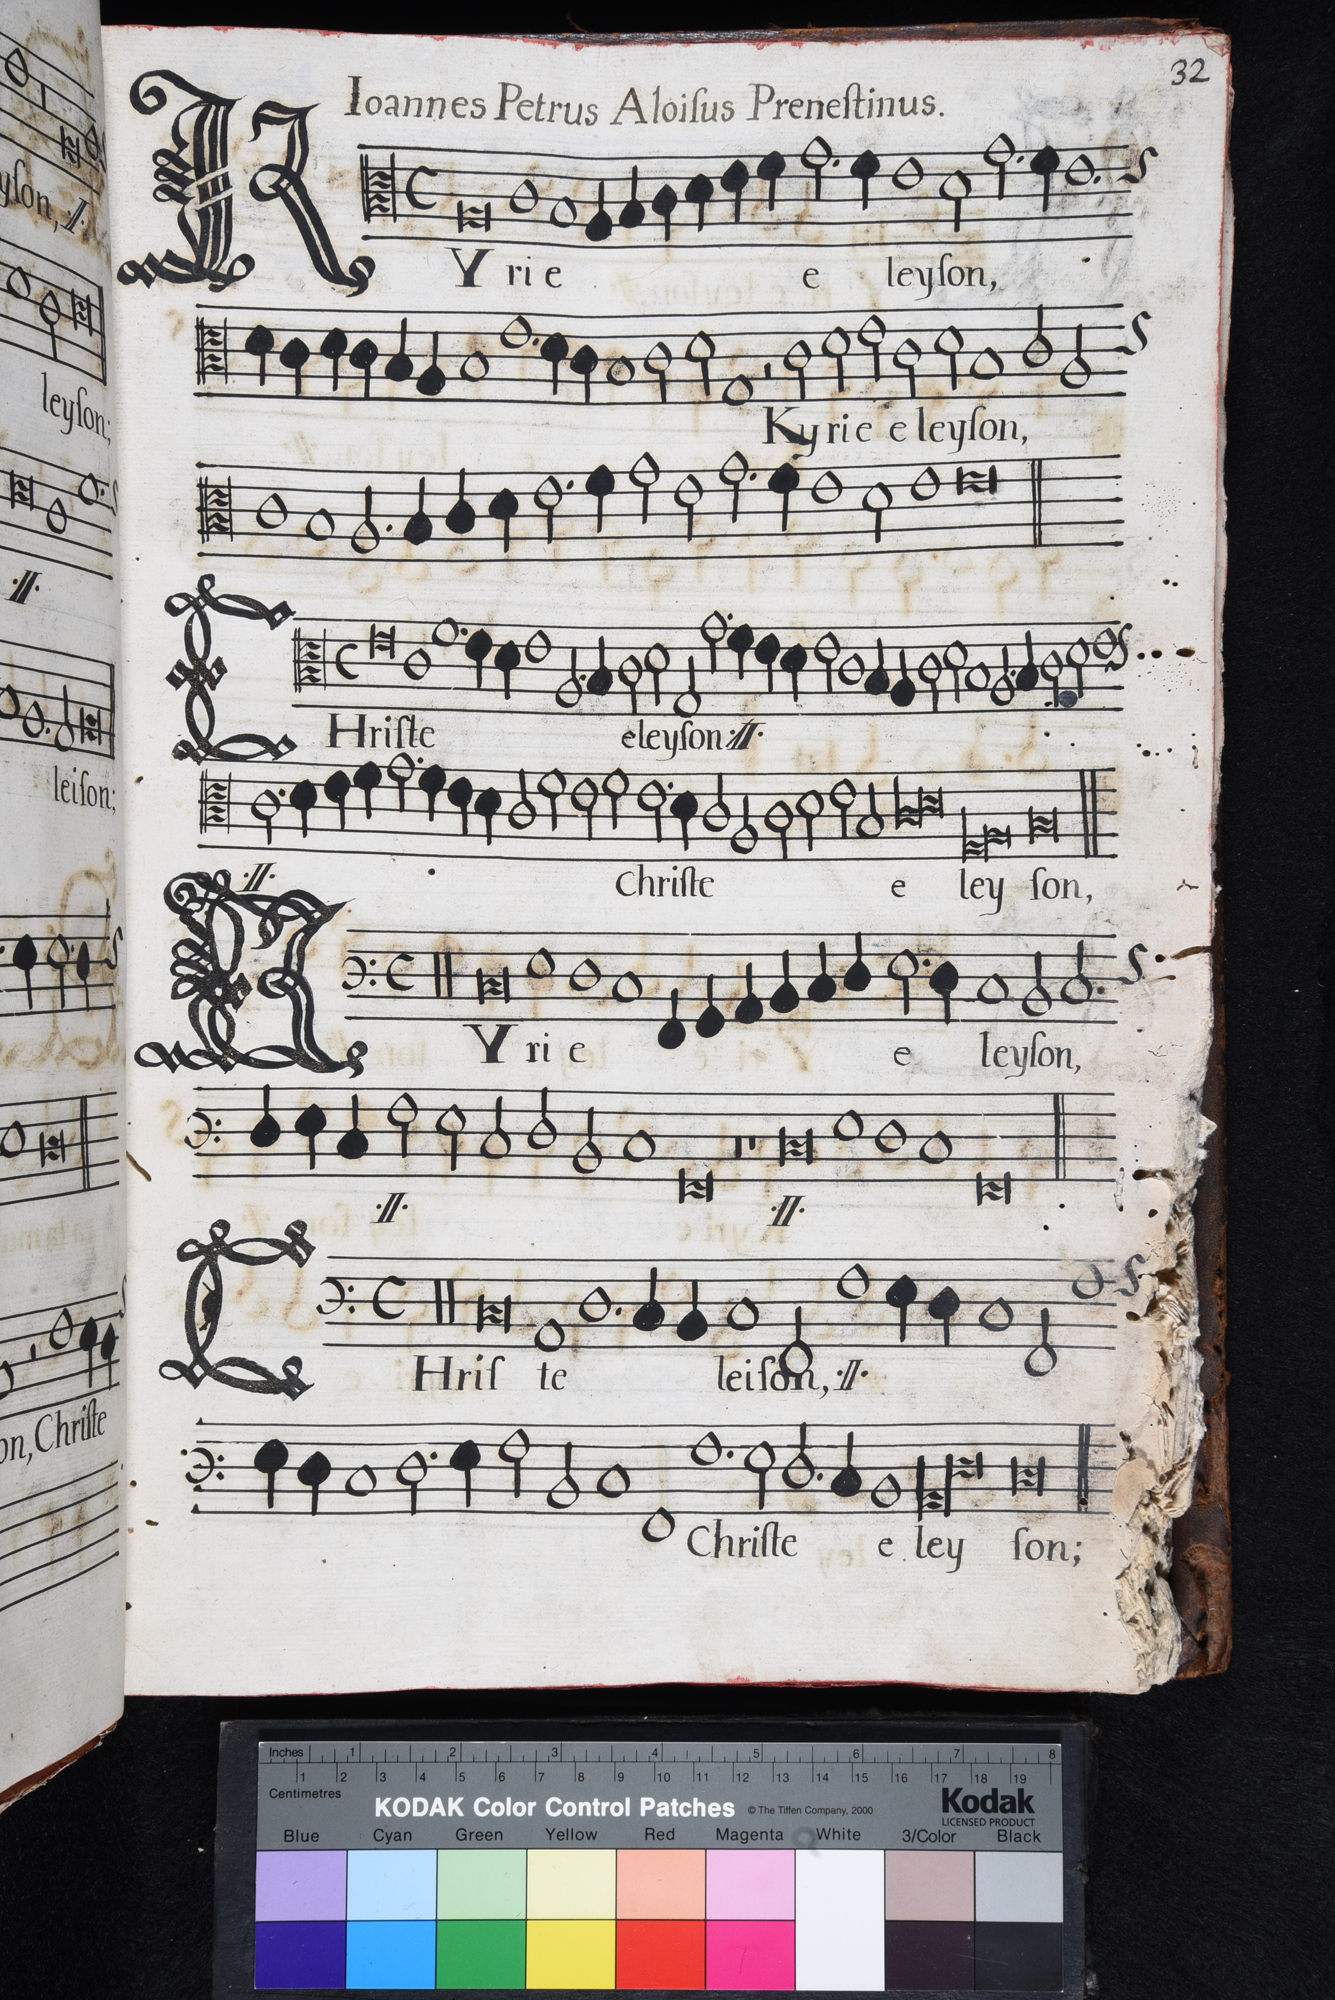 32
Ioannes Petrus Aloiſus Preneſtinus.
KYrie e leyſon,
Kyrie e leyſon,
CHriſte eleyſon ://:
.//. Chriſte e ley ſon,
KYrie e leyſon,
.//. .//.
CHriſ te leiſon, .//.
Chriſte e ley ſon;
yſon, .//.
leyſon;
.//.
leiſon;
on, Chriſte
Inches 1 2 3 4 5 6 7 8
Centimetres 1 2 3 4 5 6 7 8 9 10 11 12 13 14 15 16 17 18 19
KODAK Color Control Patches © The Tiffen Company, 2000 Kodak
LICENSED PRODUCT
Blue Cyan Green Yellow Red Magenta White 3/Color Black